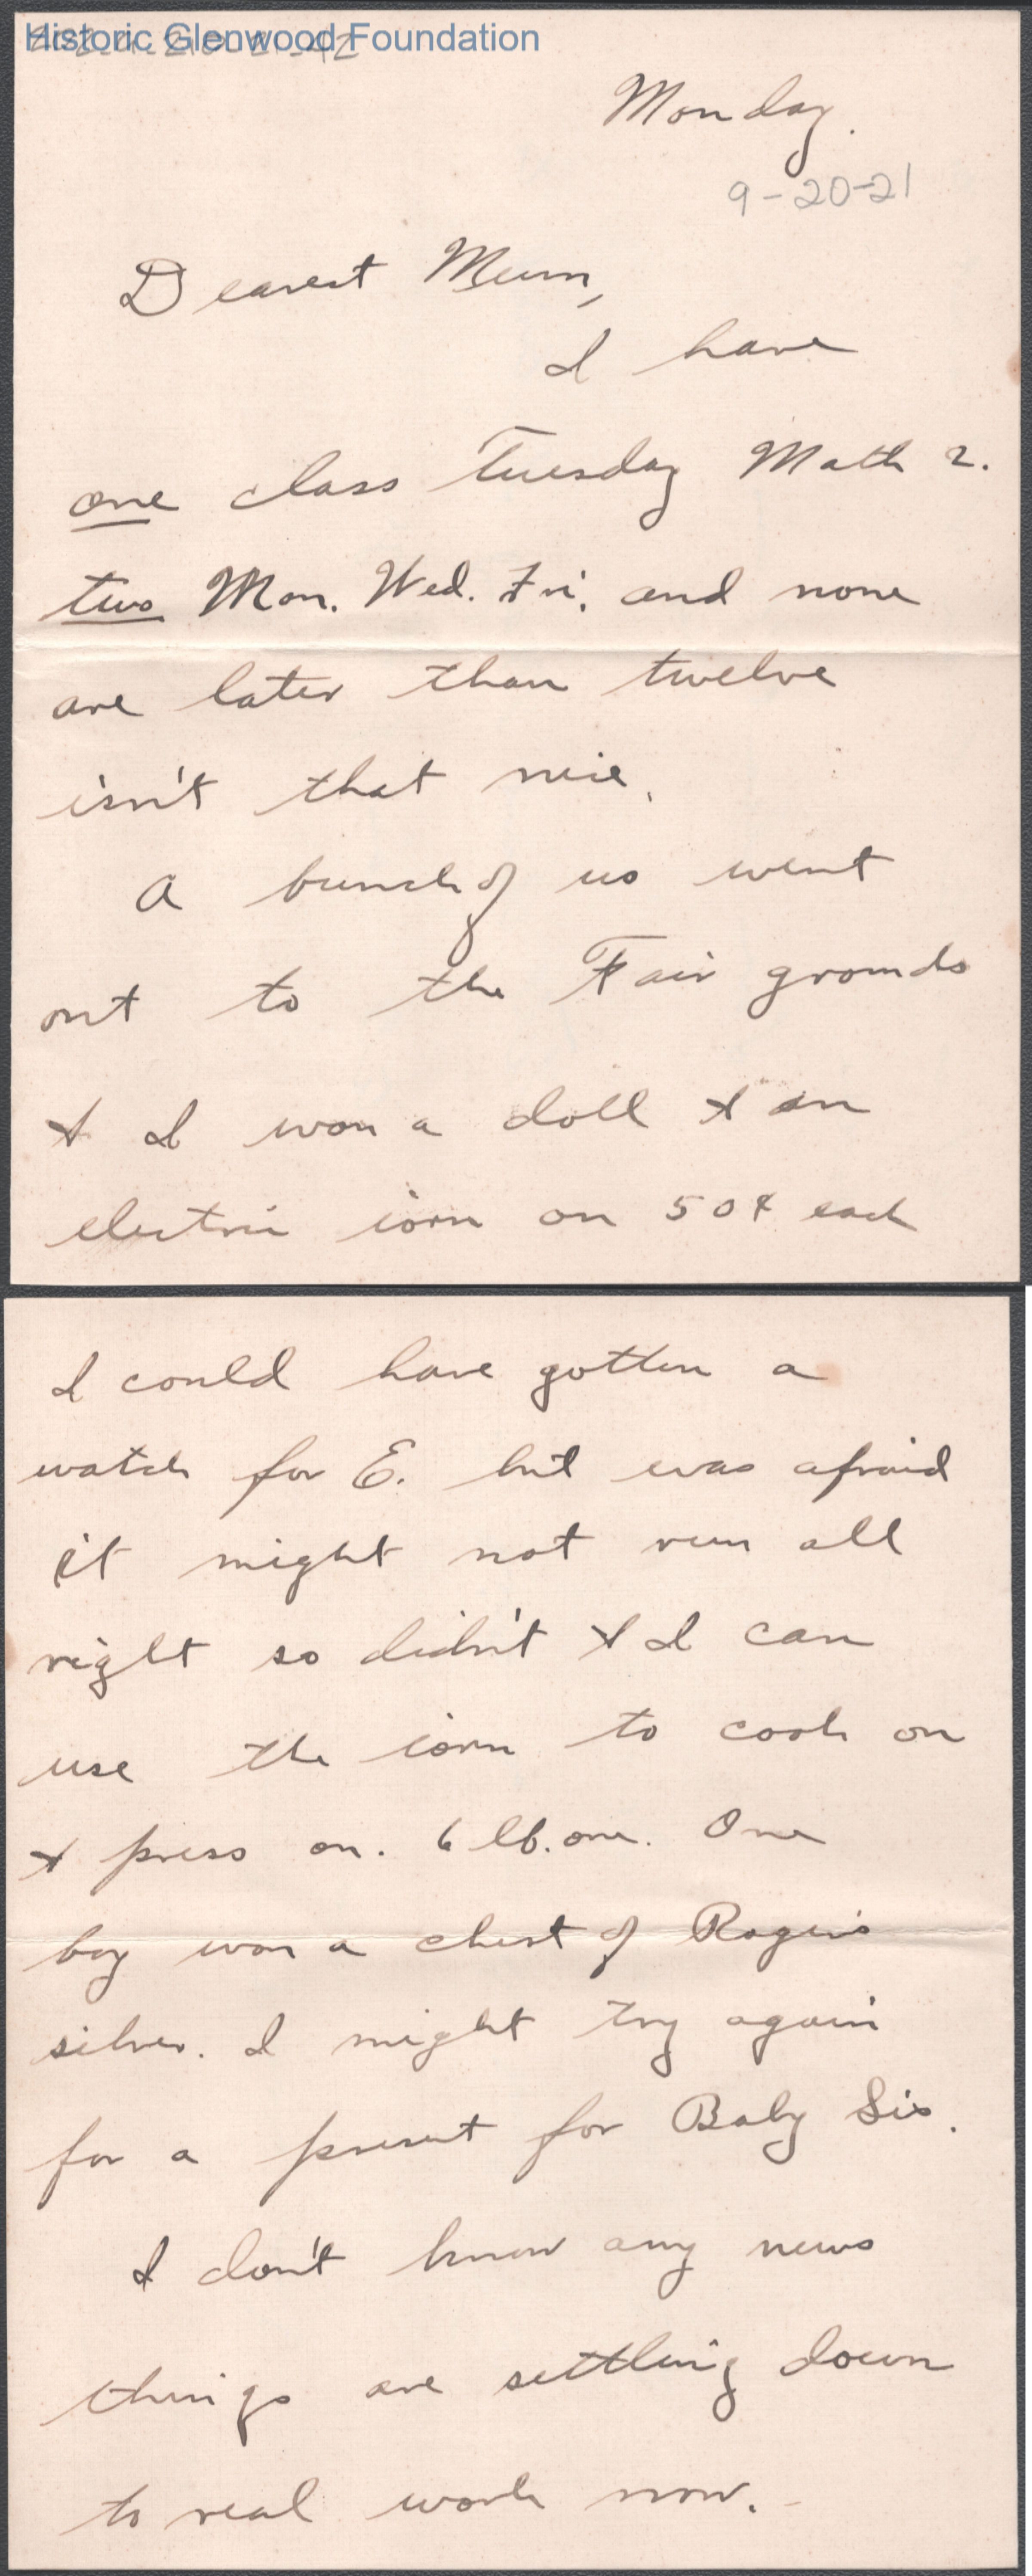 Historic Glenwood Foundation
Monday.
9-20-21
Dearest Mum,
I have
one class Tuesday Math 2.
two Mon. Wed. Fri. and none
are later than twelve
isn't that nice.
A bunch of us went
out to the Fair grounds
& I won a doll & an
electric iorn on 50¢ each
I could have gotten a
watch for E. but was afraid
it might not run all
right so didn't & I can
use the iorn to cook on
& press on. 6 lb. one. One
boy won a chest of Rogers
silver. I might try again
for a present for Baby Sis.
I don't know any news
things are settling down
to real work now.